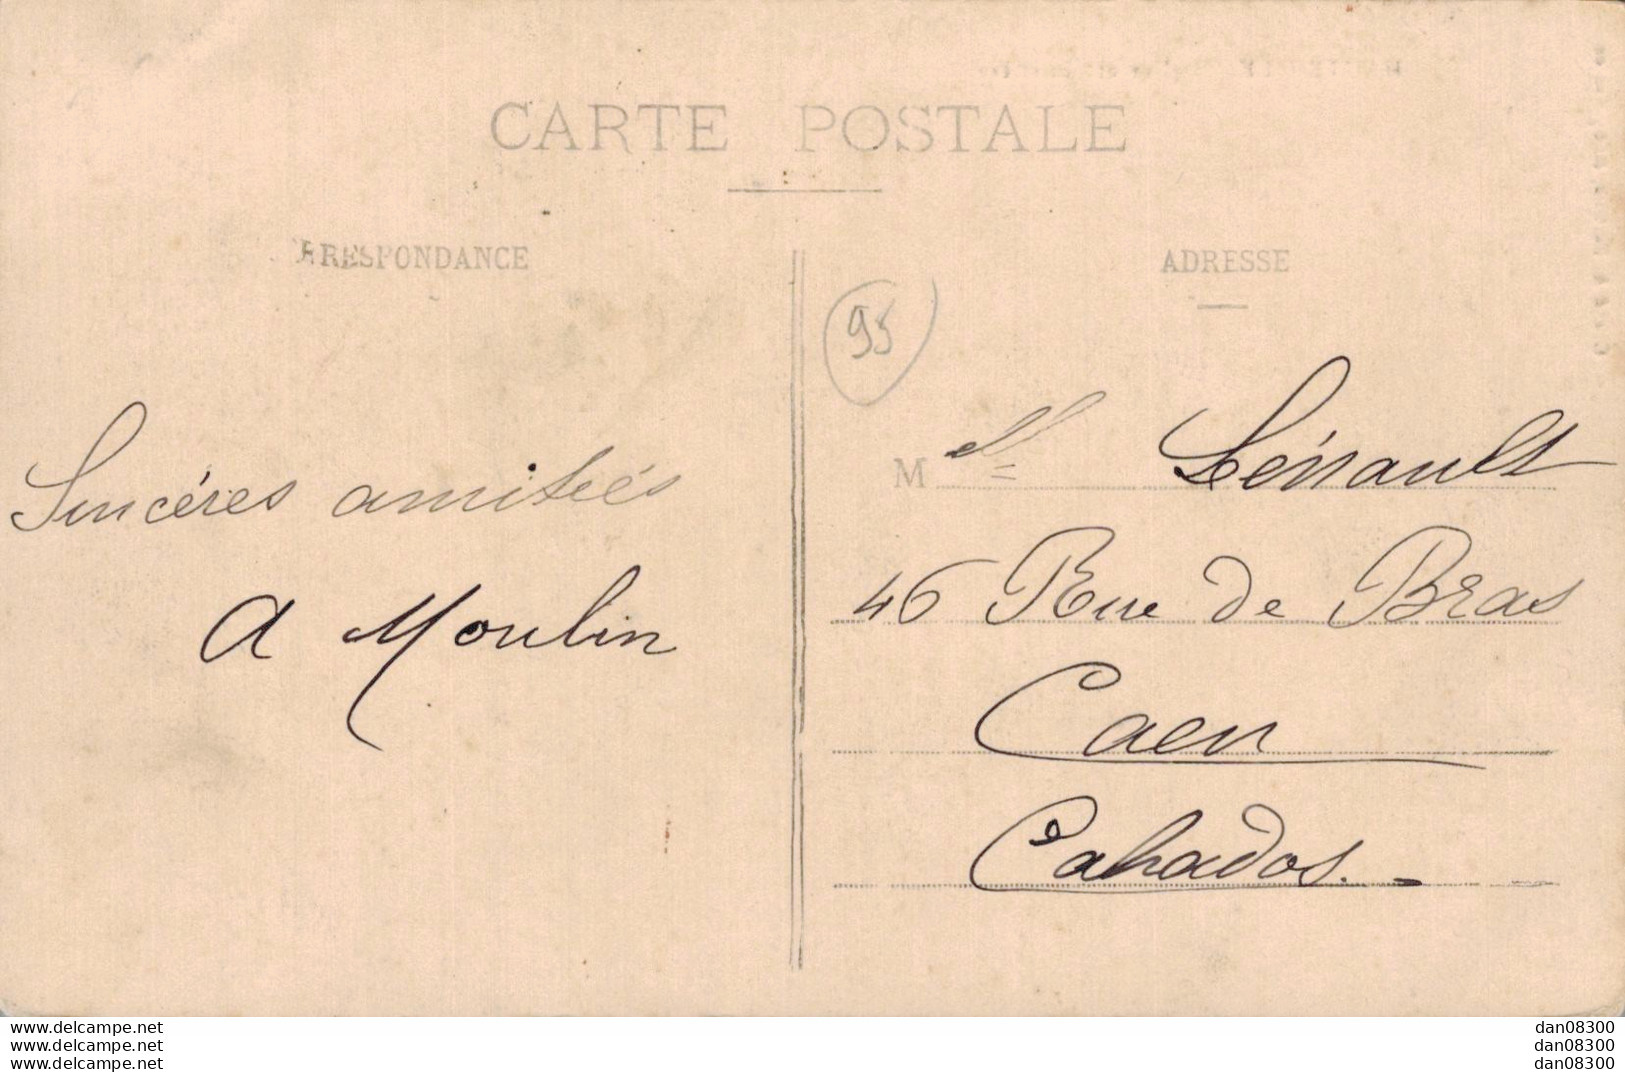 CARTE POSTALE
RRESPONDANCE
ADRESSE
95
Sincéres amitiés
A Moulin
Melle Lénault
46 Rue de Bras
Caen
Calvados.-
www.delcampe.net
www.delcampe.net
www.delcampe.net
dan08300
dan08300
dan08300